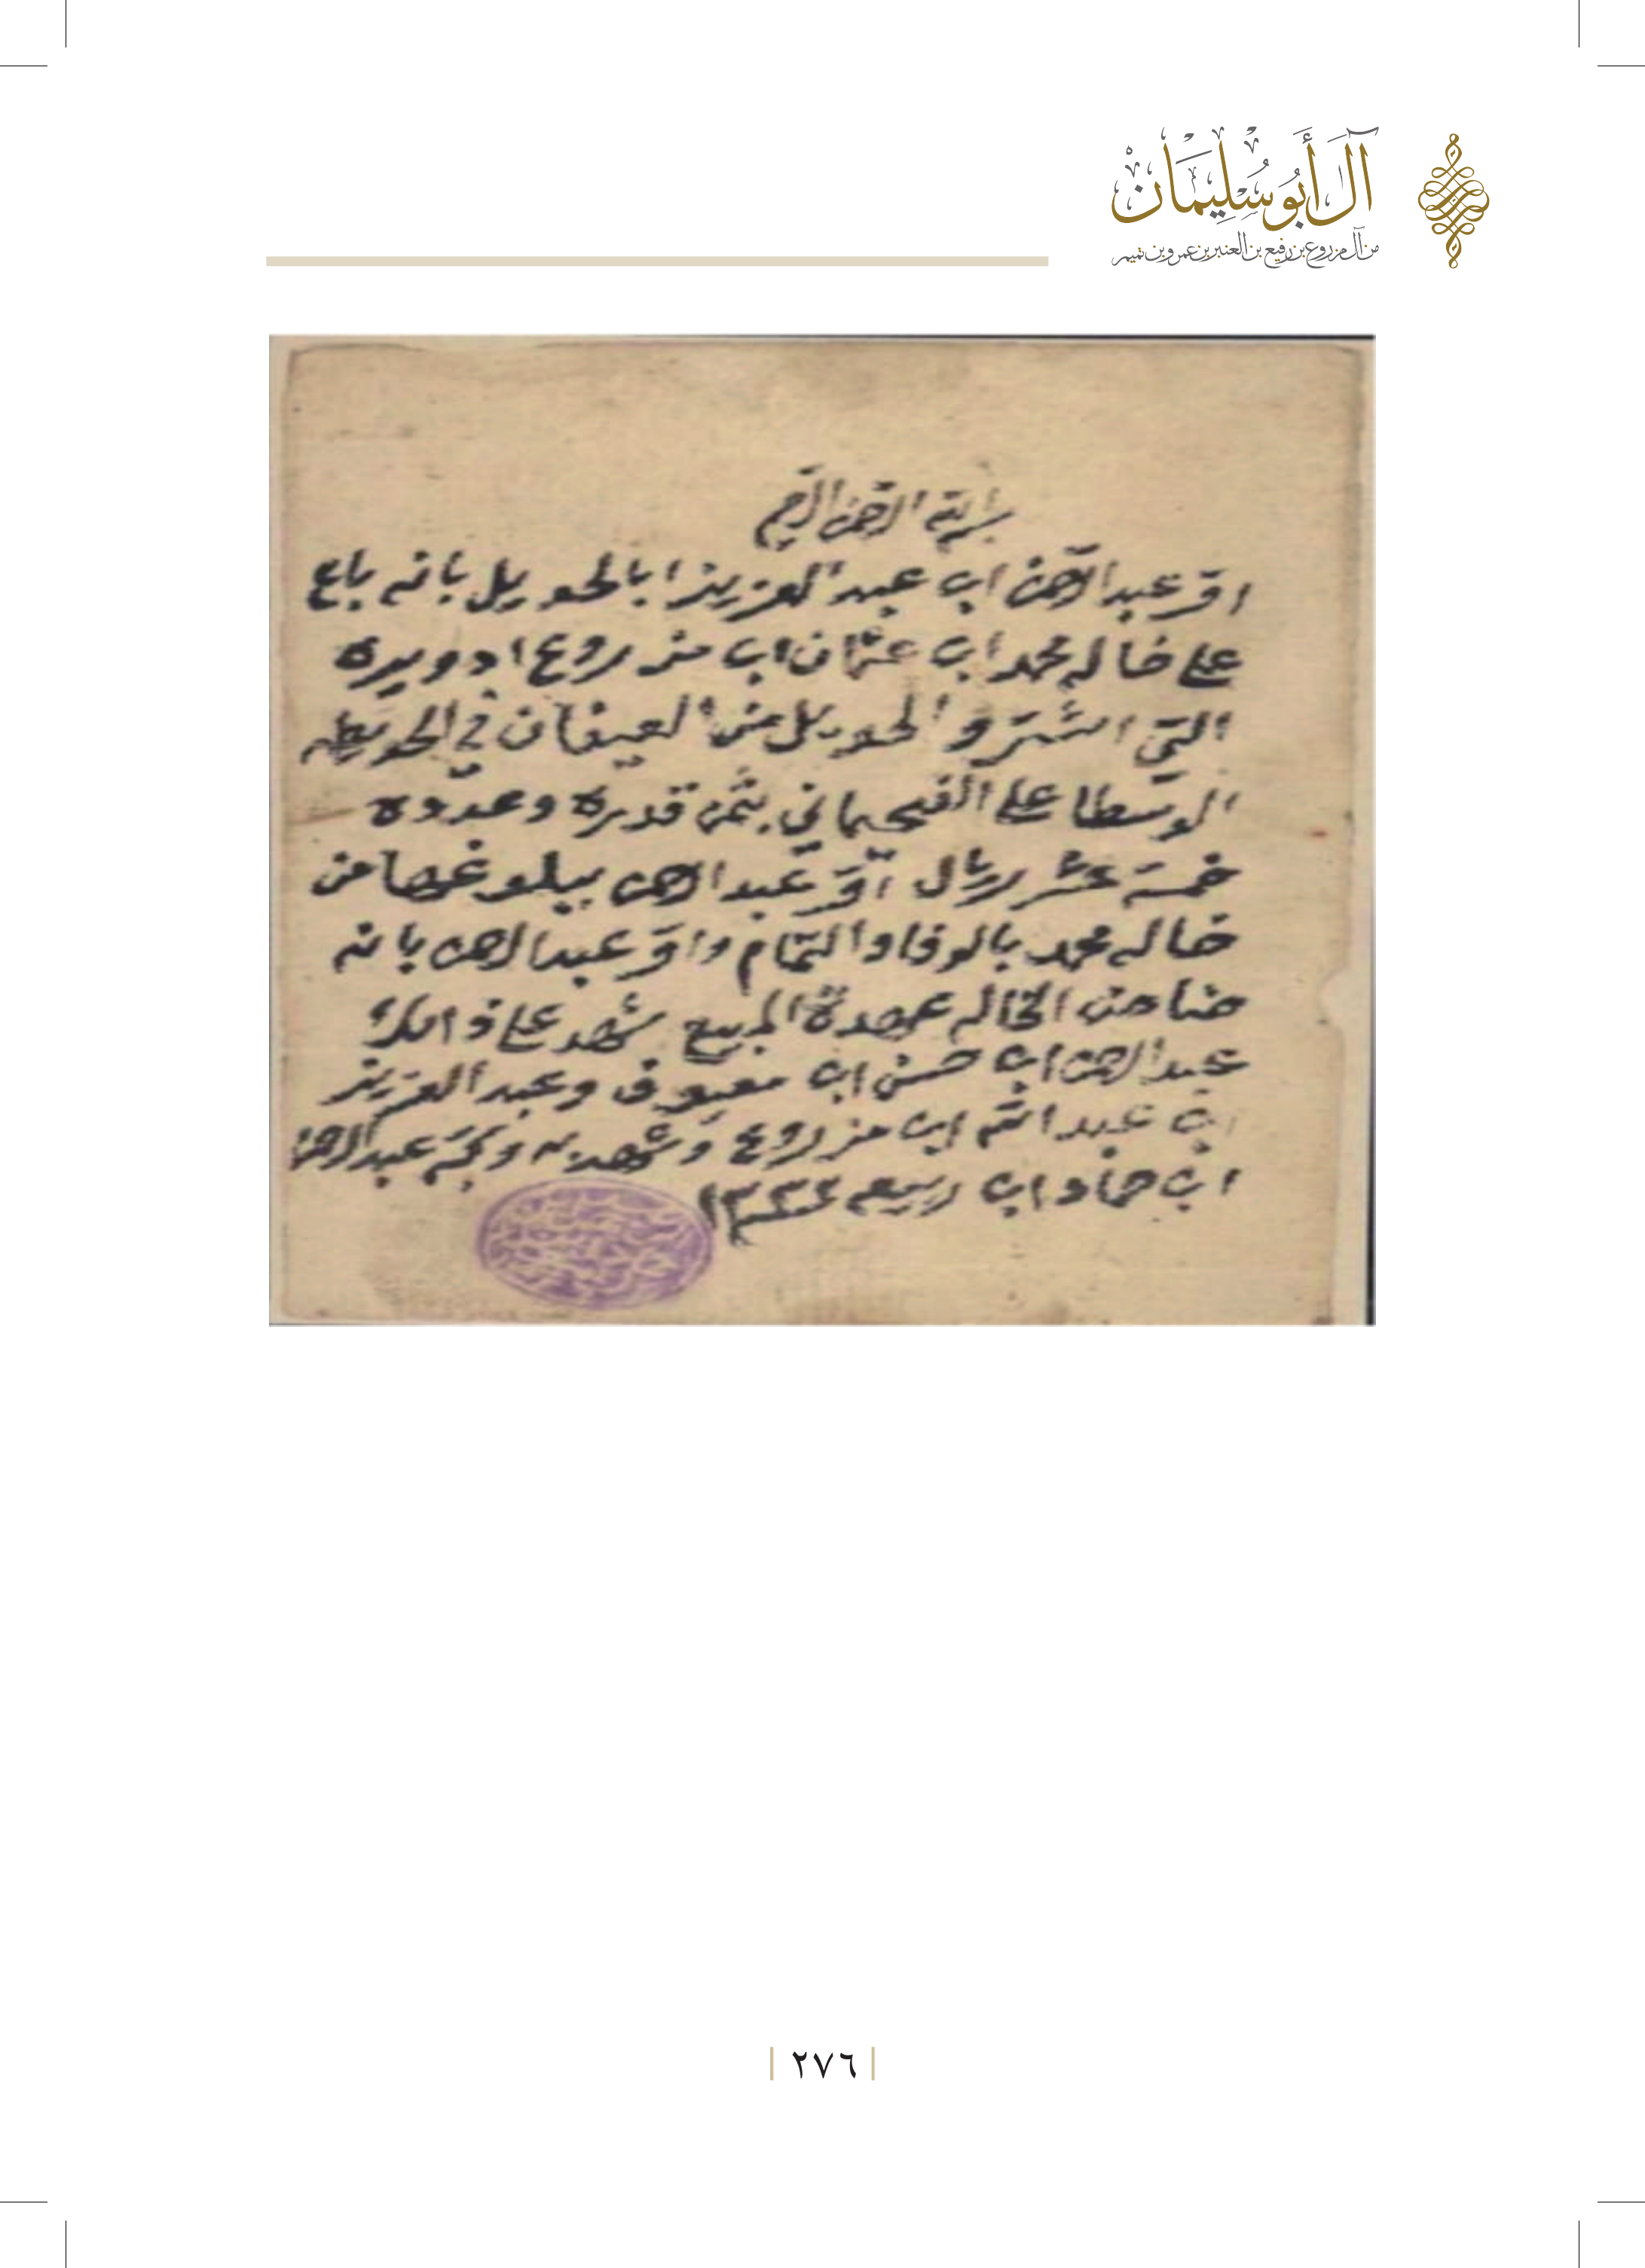 آل أبو سليمان
من آل مزروع بن رفيع بن العنبر بن عمرو بن تميم
بسم الله الرحمن الرحيم
اقر عبد الرحمن اب عبد العزيز ابا الحويل بانه باع
على خاله محمد اب عثمان اب مزروع ادويره
التي اشترو الحويل من العيفان في الحويطه
الوسطا على الفيحماني بثمن قدره وعدوه
خمسة عشر ريال اقر عبد الرحمن ببلوغها من
خاله محمد بالوفا والتمام واقر عبد الرحمن بانه
ضامن الخاله عهدة المبيع شهد على ذالك
عبد الرحمن اب حسن اب معيوف وعبد العزيز
اب عبد الله اب مزروع وشهد به وكتبه عبد الرحمن
اب حماد اب ربيعه
٢٧٦